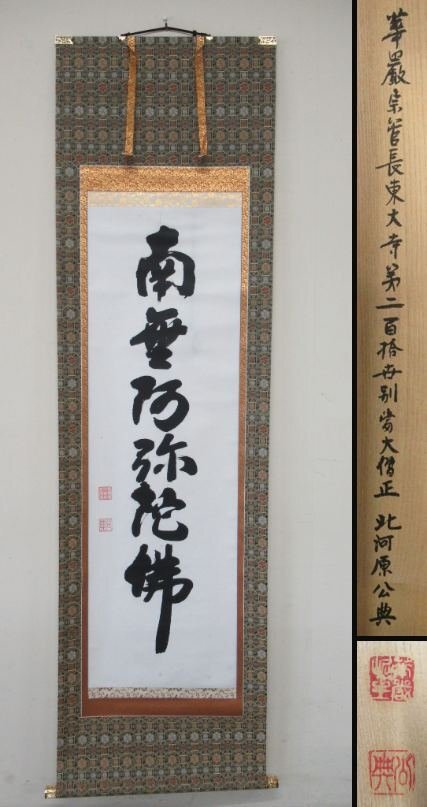 南無阿弥陀佛
華嚴宗管長東大寺第二百拾世別當大僧正 北河原公典